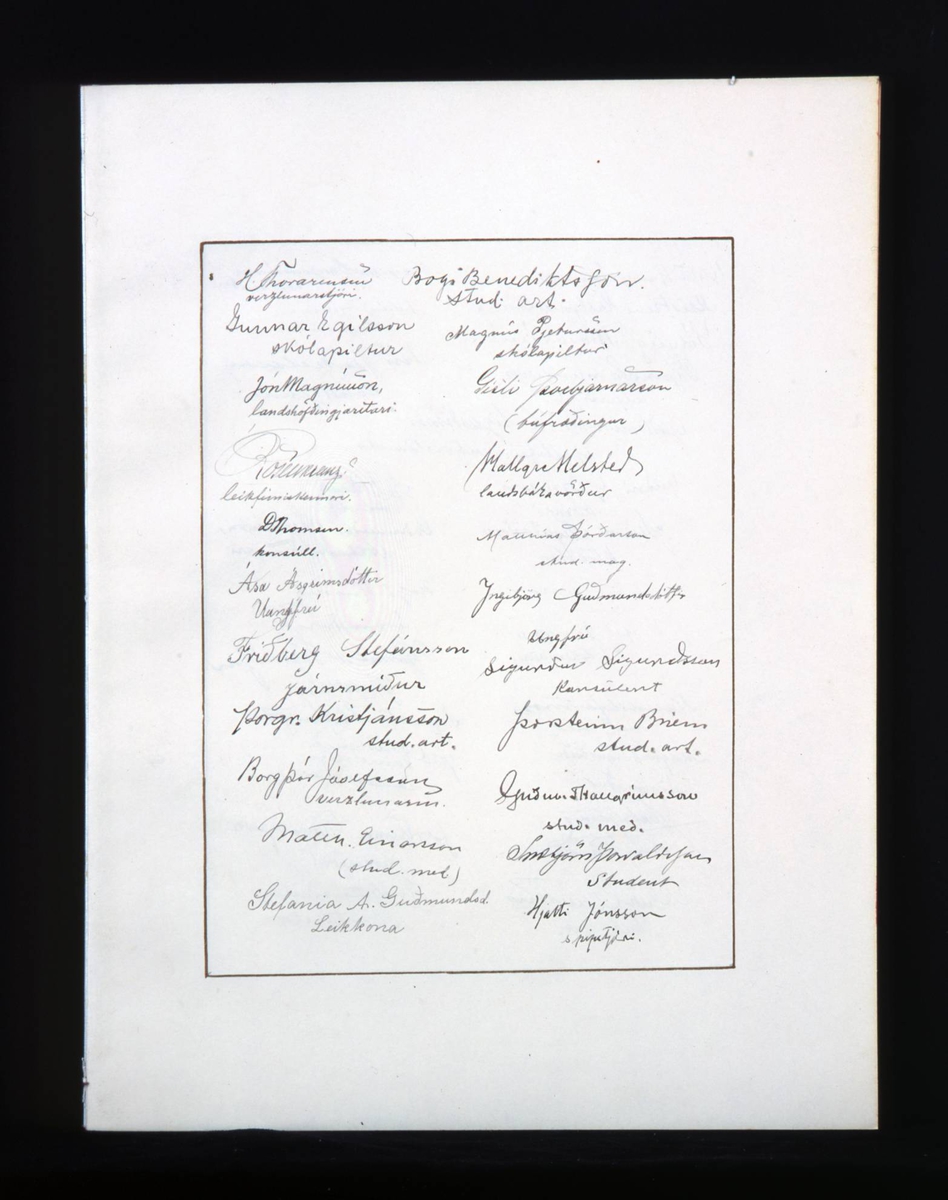 H Thorarensen
verzlunarstjóri.
Gunnar Egilsson
skólapiltur
Jón Magnússon,
landshöfðingjaritari.
leikfimiskennari.
D Thomsen.
konsúll.
Ása Ásgrímsdóttir
Ungfrú
Friðberg Stefánsson
járnsmiður
Þorgr. Kristjánsson
stud. art.
Borgþór Jósefsson
verzlunarm.
Matth. Einarsson
(stud. med)
Stefania A. Guðmundsd.
Leikkona
Bogi Benediktsson.
stud. art.
Magnús Pjetursson
skólapiltur
Gísli Þorbjarnarson
(búfræðingur)
Hallgr Melsted
landsbókavörður
Matthías Þórðarson
stud. mag.
Ingibjörg Guðmundsdóttir
Ungfrú
Sigurður Sigurdsson
Konsulent
Þorsteinn Briem
stud. art.
stud. med.
Þorvaldsson
Student
Hjalti Jónsson